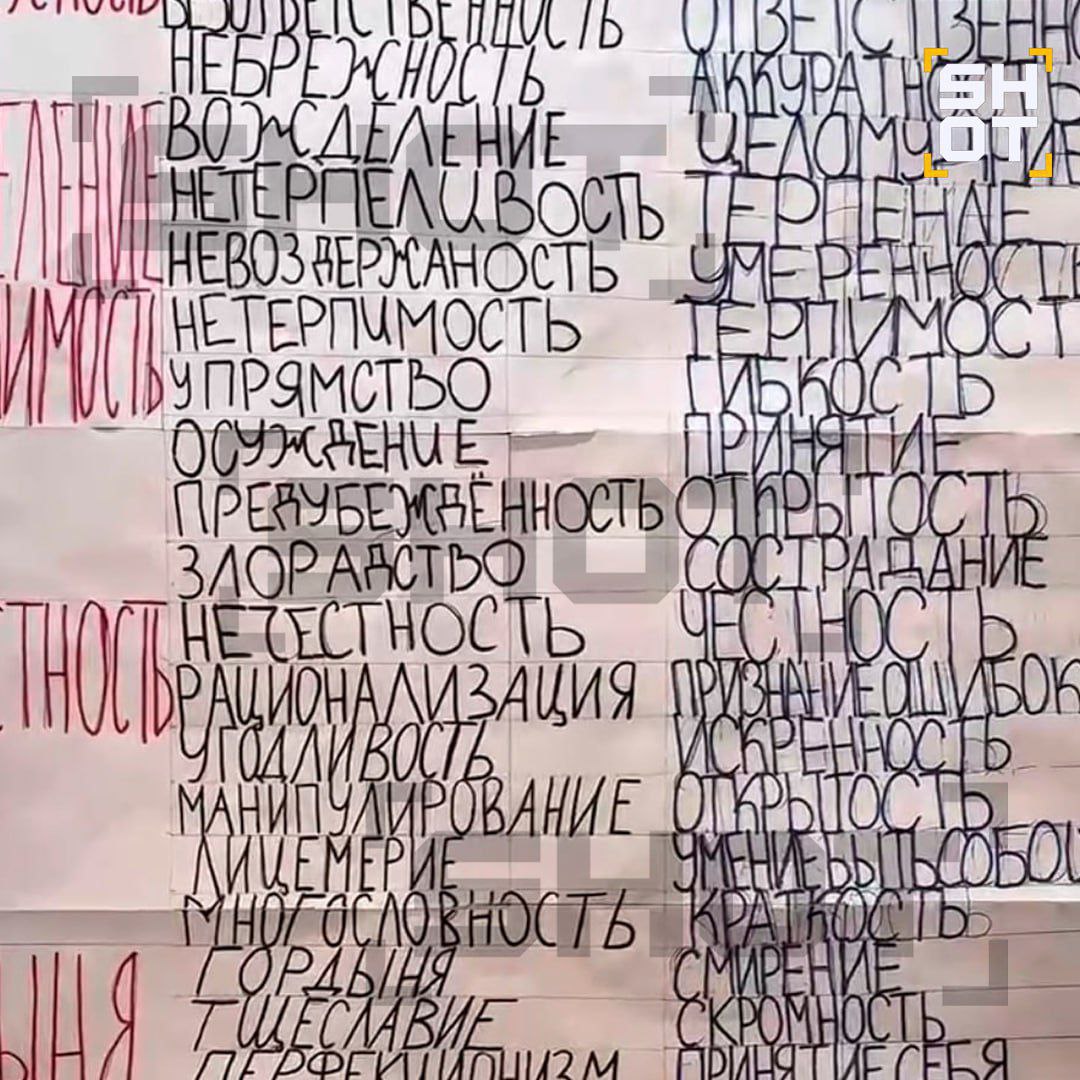 БЕЗОТВЕТСТВЕННОСТЬ ОТВЕТСТВЕННО
НЕБРЕЖНОСТЬ АККУРАТНОСТЬ
ВОЖДЕЛЕНИЕ ЦЕЛОМУДРИЕ
НЕТЕРПЕЛИВОСТЬ ТЕРПЕНИЕ
НЕВОЗДЕРЖАНОСТЬ УМЕРЕННОСТЬ
НЕТЕРПИМОСТЬ ТЕРПИМОСТ
УПРЯМСТВО ГИБКОСТЬ
ОСУЖДЕНИЕ ПРИНЯТИЕ
ПРЕДУБЕЖДЁННОСТЬ ОТКРЫТОСТЬ
ЗЛОРАДСТВО СОСТРАДАНИЕ
ТНОСТЬ НЕЧЕСТНОСТЬ ЧЕСТНОСТЬ
РАЦИОНАЛИЗАЦИЯ ПРИЗНАНИЕ ОШИБОК
УГОДЛИВОСТЬ ИСКРЕННОСТЬ
МАНИПУЛИРОВАНИЕ ОТКРЫТОСТЬ
ЛИЦЕМЕРИЕ УМЕНИЕ БЫТЬ СОБОЙ
МНОГОСЛОВНОСТЬ КРАТКОСТЬ
ЫНЯ ГОРДЫНЯ СМИРЕНИЕ
ТЩЕСЛАВИЕ СКРОМНОСТЬ
ПЕРФЕКЦИОНИЗМ ПРИНЯТИЕ СЕБЯ
ЕЛЕНИЕ
ИМОСТЬ
SHOT